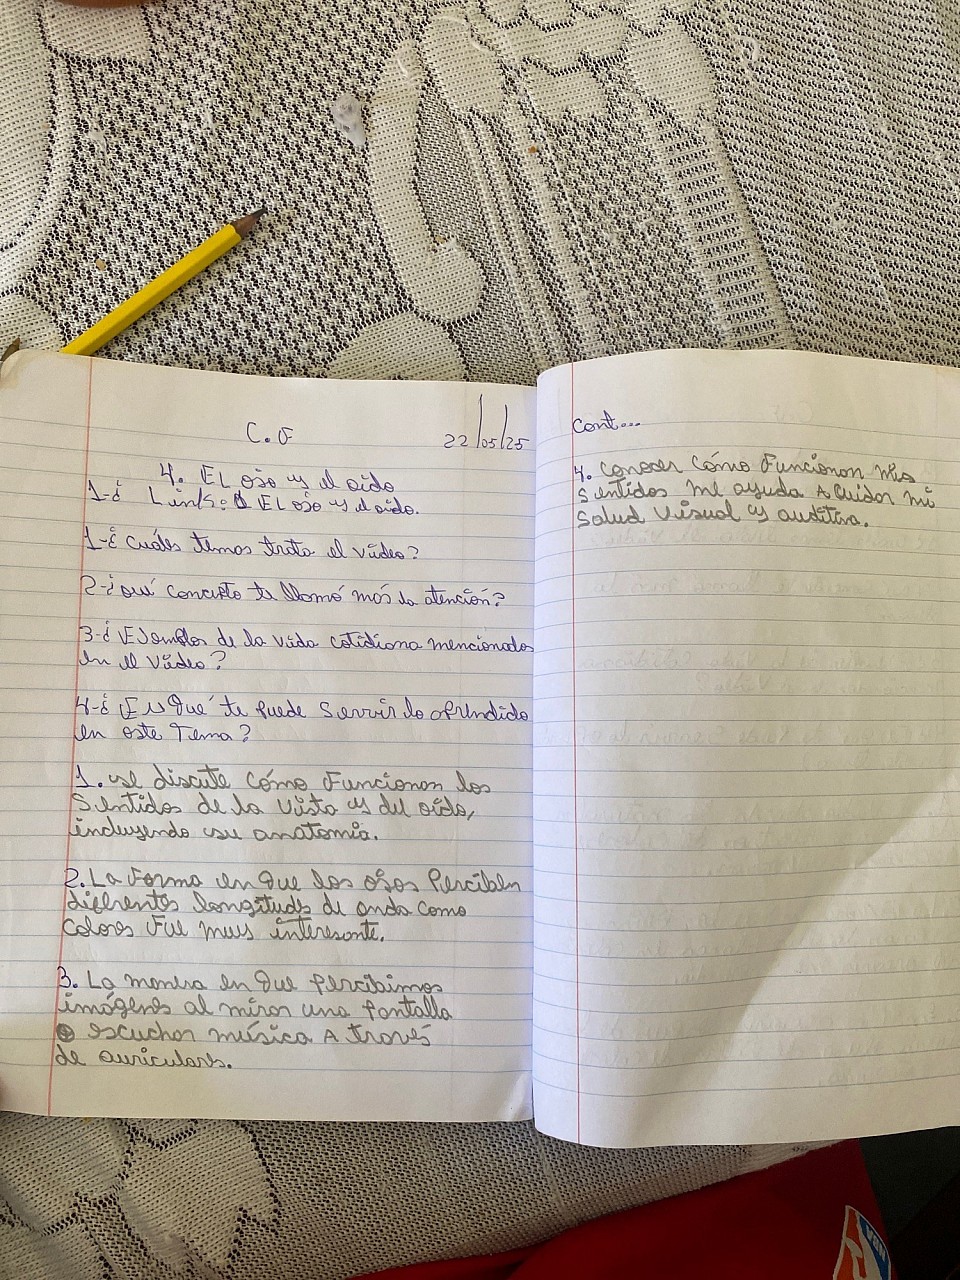 C.F
22/05/25
4. EL ojo y el oido
1-¿ Links: EL ojo y el oido.
1-¿ cuáles temas trata el vídeo?
2-¿ qué concepto te llamó más la atención?
3-¿ Ejemplos de la vida cotidiana mencionados
en el vídeo?
4-¿ En qué te puede servir lo aprendido
en este Tema?
1. se discute cómo Funcionan los
Sentidos de la vista y del oído,
incluyendo su anatomía.
2. La Forma en que los ojos Perciben
diferentes longitudes de onda como
colores Fue muy interesante.
3. La manera en que percibimos
imágenes al mirar una pantalla
o escuchar música A través
de auriculares.
Cont...
4. conocer cómo Funcionan mis
Sentidos me ayuda A cuidar mi
Salud visual y auditiva.